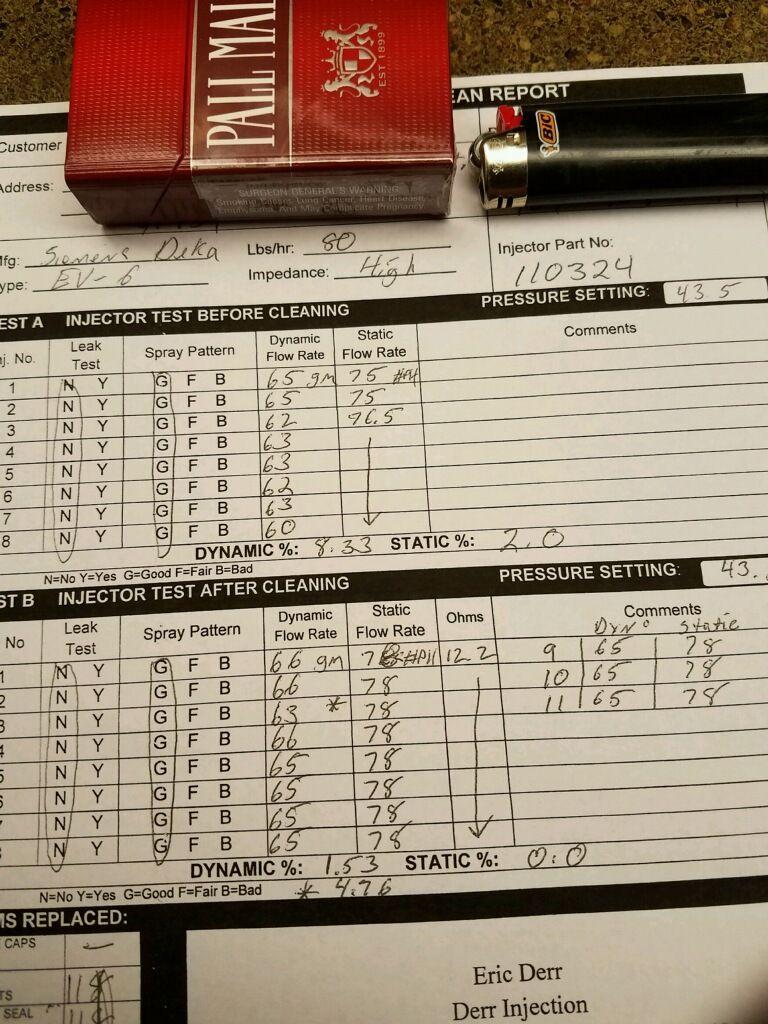 PALL MAL
EST 1899
SURGEON GENERAL'S WARNING
Smoking Causes Lung Cancer, Heart Disease,
Emphysema, And May Complicate Pregnancy.
BIC
EAN REPORT
Customer
Address:
Mfg: Siemens Deka Lbs/hr: 80 Injector Part No:
ype: EV-6 Impedance: High 110324
EST A INJECTOR TEST BEFORE CLEANING PRESSURE SETTING: 43.5
nj. No. Leak Test Spray Pattern Dynamic Flow Rate Static Flow Rate Comments
1 N Y G F B 65 gm 75 #PH
2 N Y G F B 65 75
3 N Y G F B 62 76.5
4 N Y G F B 63
5 N Y G F B 63
6 N Y G F B 62
7 N Y G F B 63
8 N Y G F B 60
DYNAMIC %: 8.33 STATIC %: 2.0
N=No Y=Yes G=Good F=Fair B=Bad
ST B INJECTOR TEST AFTER CLEANING PRESSURE SETTING: 43.
No Leak Test Spray Pattern Dynamic Flow Rate Static Flow Rate Ohms Comments
Dyno Static
1 N Y G F B 66 gm 78 #PH 12.2 9 65 78
2 N Y G F B 66 78 10 65 78
3 N Y G F B 63 * 78 11 65 78
4 N Y G F B 66 78
5 N Y G F B 65 78
6 N Y G F B 65 78
7 N Y G F B 65 78
8 N Y G F B 65 78
DYNAMIC %: 1.53 STATIC %: 0.0
N=No Y=Yes G=Good F=Fair B=Bad * 4.76
MS REPLACED:
CAPS
TS 11
SEAL 11
Eric Derr
Derr Injection